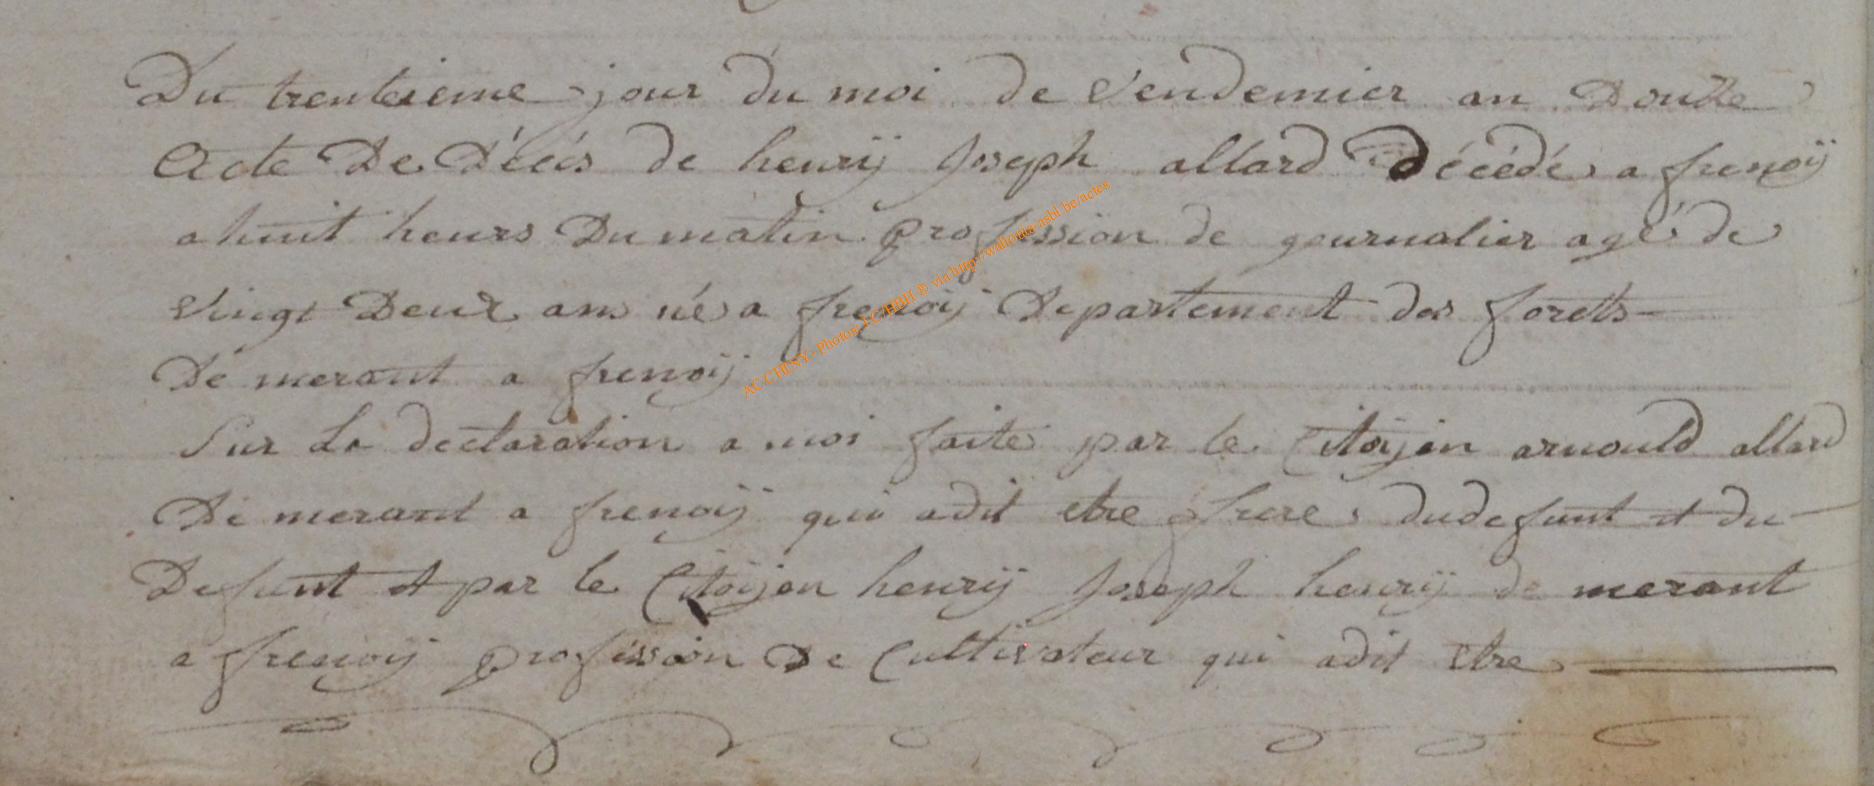 Du trenteieme jour du moi de Vendemier an Douze
Acte De Décés de henrÿ Joseph allard Décédé a frenoÿ
a huit heurs Du matin profession de journalier agé de
Vingt Deux ans né a frenoÿ Departement des forets
De merant a frenoÿ
Sur La declaration a moi faite par le Citoÿen arnould allard
De merant a frenoÿ qui a dit etre frere du defunt et du
Defunt et par le Citoÿen henrÿ Joseph henrÿ de merant
a frenoÿ profission De Cultivateur qui a dit Etre
AC CHINY - Photos LC/HBH ® via http://wallonia-asbl.be/actes